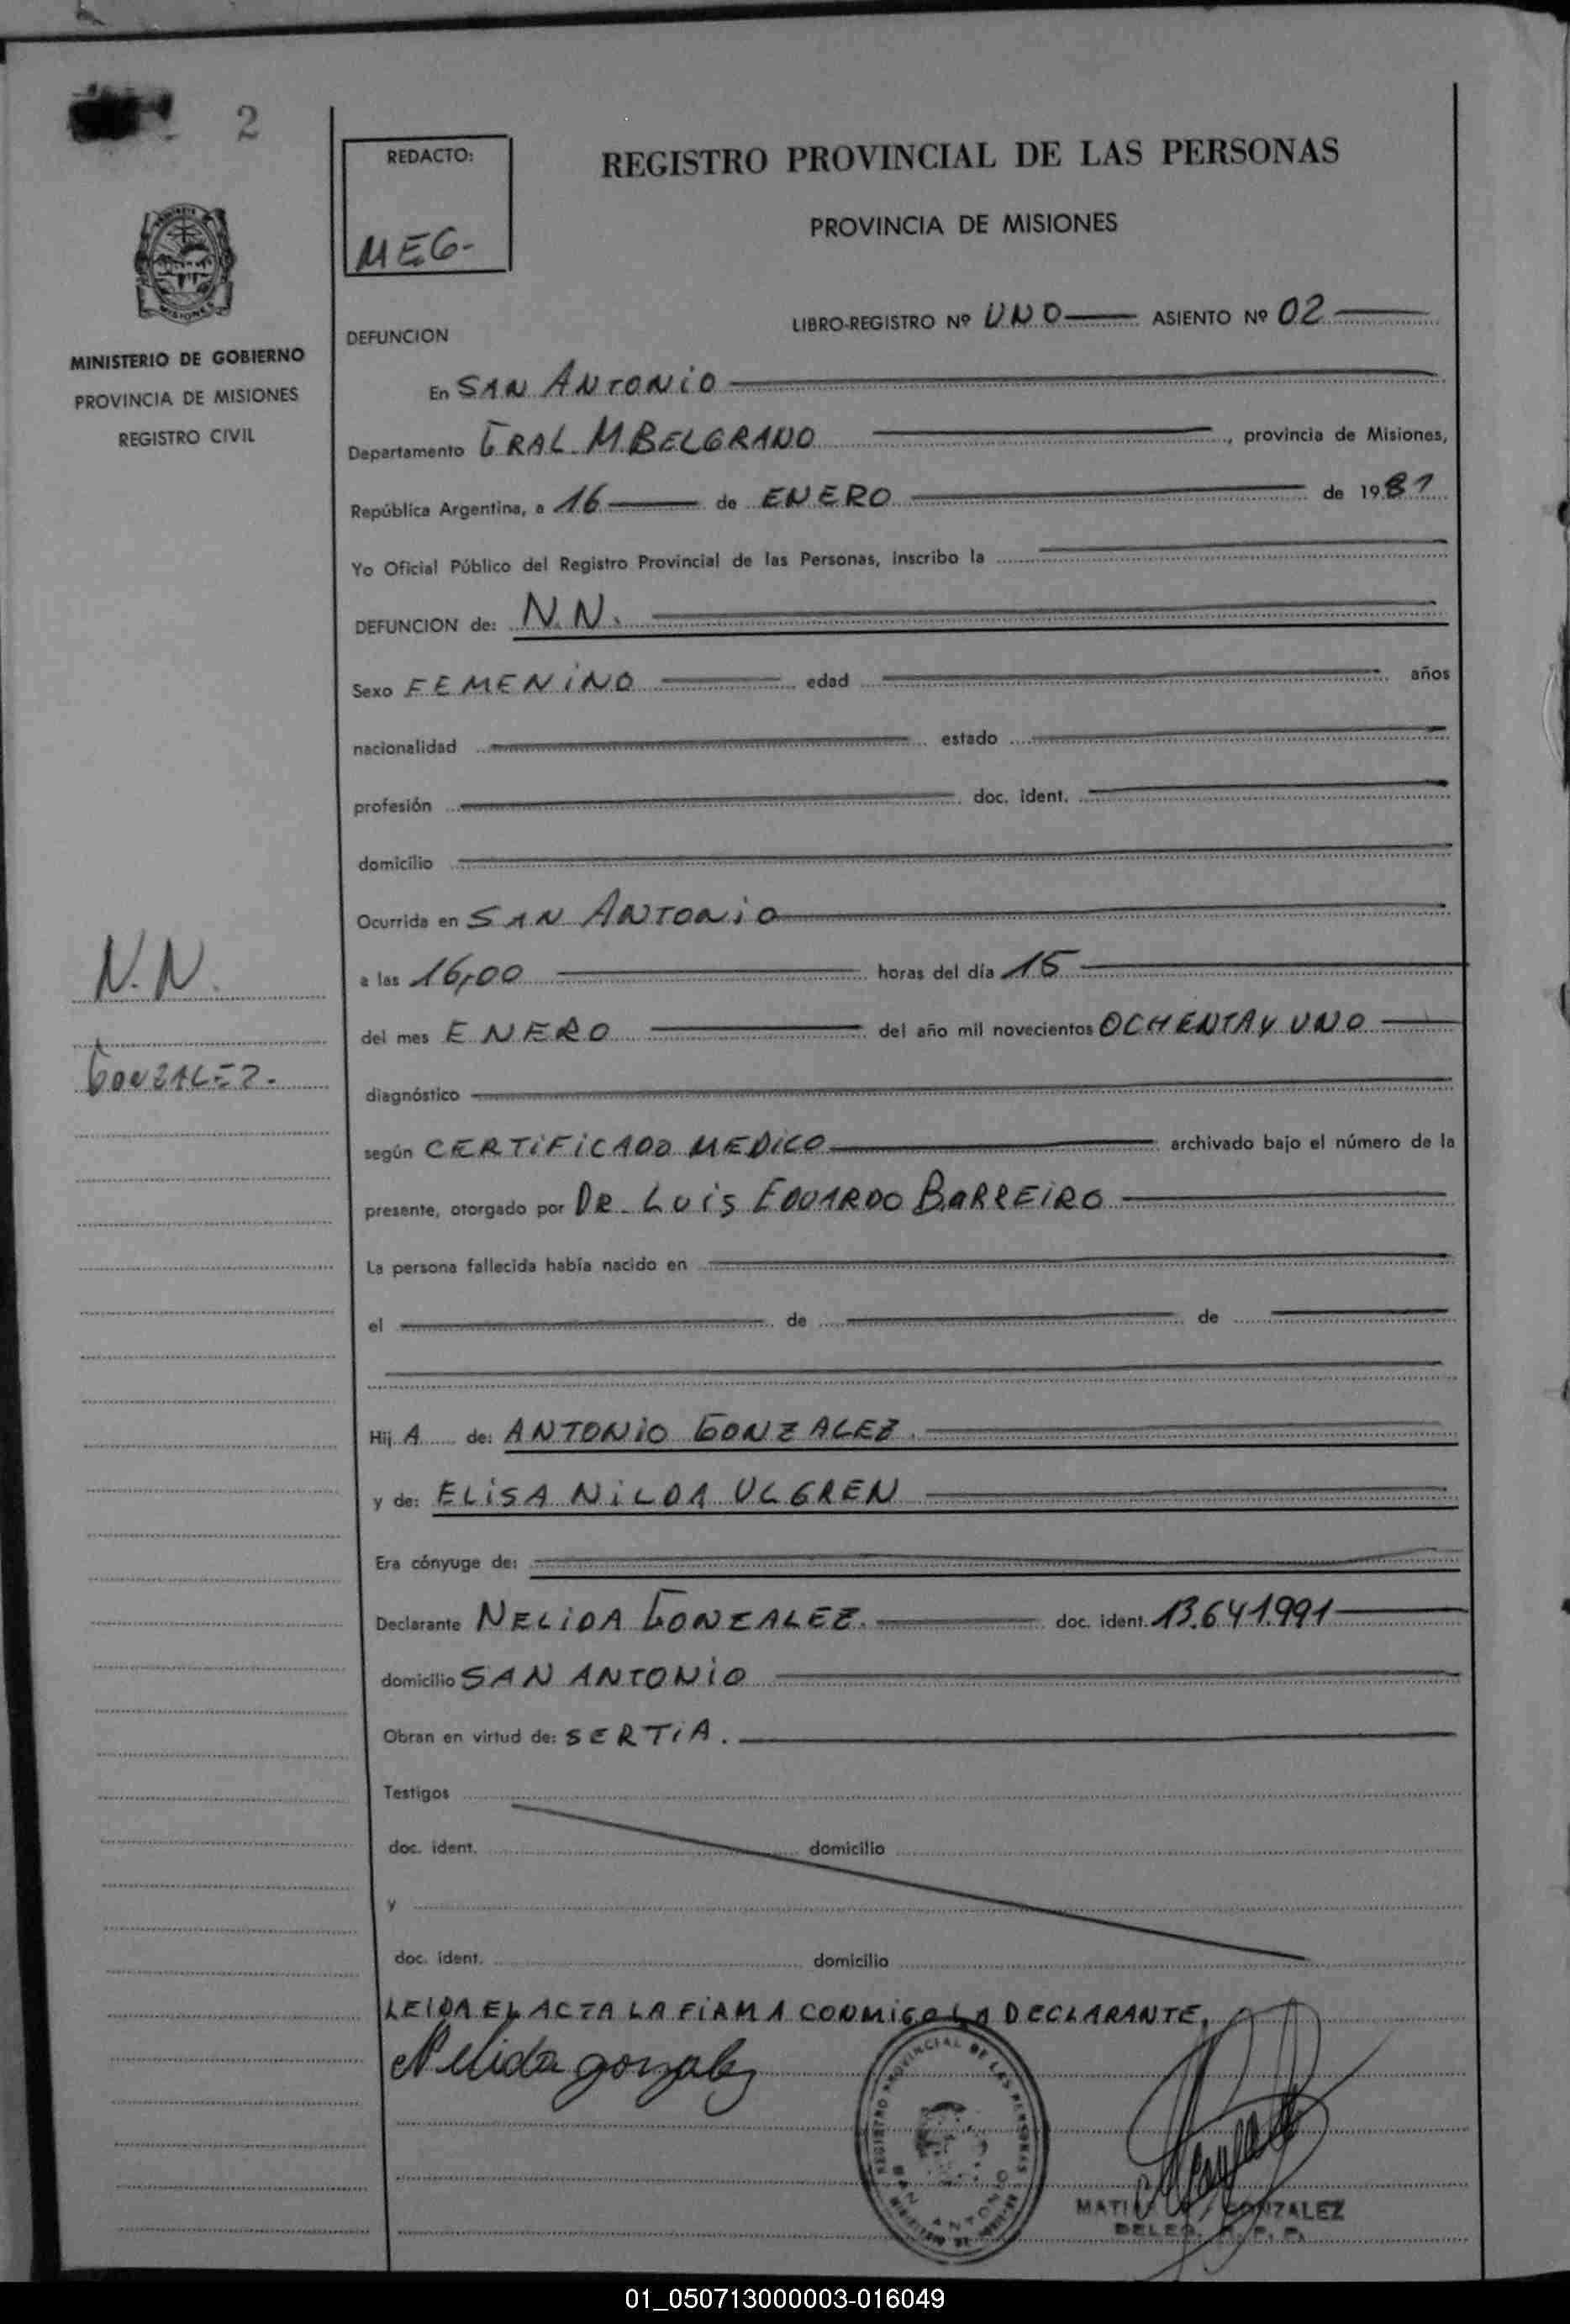 2
REDACTO:
MEG-
REGISTRO PROVINCIAL DE LAS PERSONAS
PROVINCIA DE MISIONES
MINISTERIO DE GOBIERNO
PROVINCIA DE MISIONES
REGISTRO CIVIL
LIBRO-REGISTRO Nº UNO ASIENTO Nº 02
DEFUNCION
En SAN ANTONIO
Departamento GRAL. M. BELGRANO, provincia de Misiones,
República Argentina, a 16 de ENERO de 1981
Yo Oficial Público del Registro Provincial de las Personas, inscribo la
DEFUNCION de: N.N.
Sexo FEMENINO edad años
nacionalidad estado
profesión doc. ident.
domicilio
Ocurrida en SAN ANTONIO
N.N.
GONZALEZ.
a las 16,00 horas del día 15
del mes ENERO del año mil novecientos OCHENTA Y UNO
diagnóstico
según CERTIFICADO MEDICO archivado bajo el número de la
presente, otorgado por DR. LUIS EDUARDO BARREIRO
La persona fallecida había nacido en
el de de
Hij A de: ANTONIO GONZALEZ.
y de: ELISA NILDA ULGREN
Era cónyuge de:
Declarante NELIDA GONZALEZ. doc. ident. 13.641.991
domicilio SAN ANTONIO
Obran en virtud de: SERTIA.
Testigos
doc. ident. domicilio
y
doc. ident. domicilio
LEIDA EL ACTA LA FIRMA CONMIGO LA DECLARANTE.
Nelida gonzalez
REGISTRO PROVINCIAL DE LAS PERSONAS
SAN ANTONIO
GONZALEZ
DELEG. R. P. P.
01_050713000003-016049